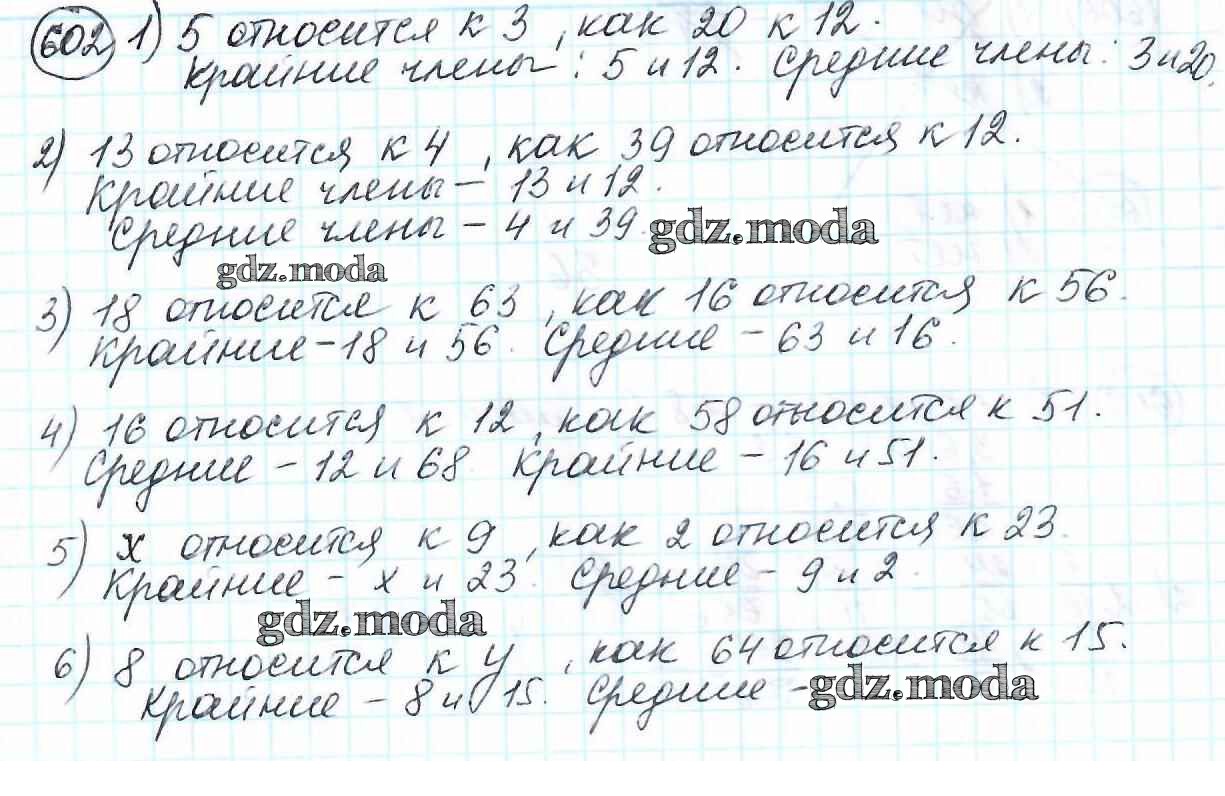 602 1) 5 относится к 3, как 20 к 12.
Крайние члены: 5 и 12. Средние члены: 3 и 20.
2) 13 относится к 4, как 39 относится к 12.
Крайние члены – 13 и 12.
Средние члены – 4 и 39. gdz.moda
gdz.moda
3) 18 относится к 63, как 16 относится к 56.
Крайние – 18 и 56. Средние – 63 и 16.
4) 16 относится к 12, как 58 относится к 51.
Средние – 12 и 68. Крайние – 16 и 51.
5) x относится к 9, как 2 относится к 23.
Крайние – x и 23. Средние – 9 и 2.
gdz.moda
6) 8 относится к y, как 64 относится к 15.
Крайние – 8 и 15. Средние – gdz.moda